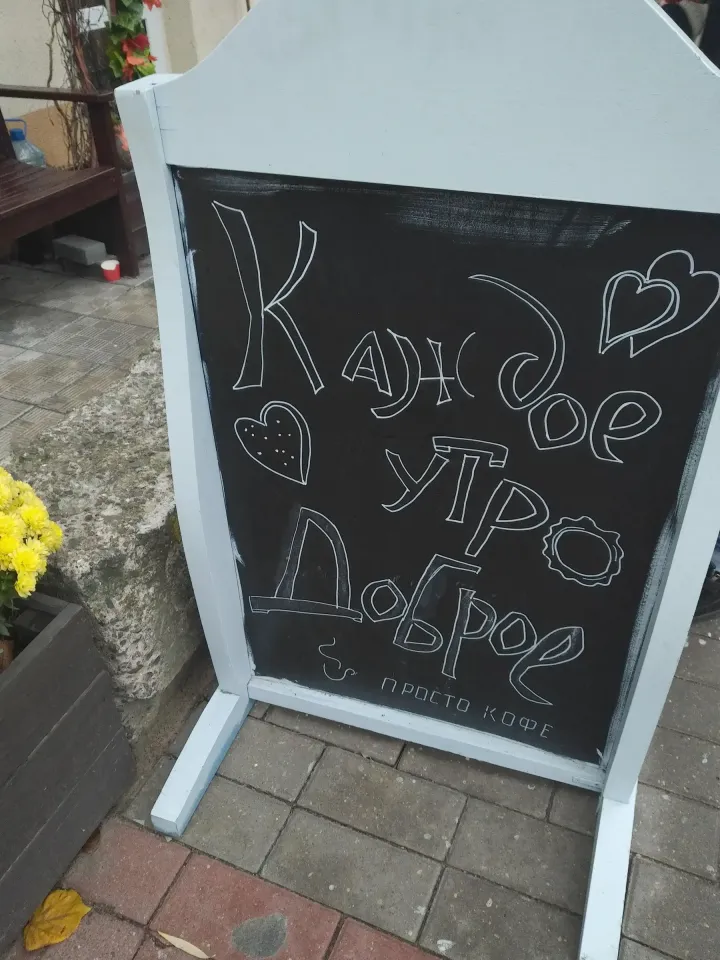 Каждое
утро
Доброе
просто кофе